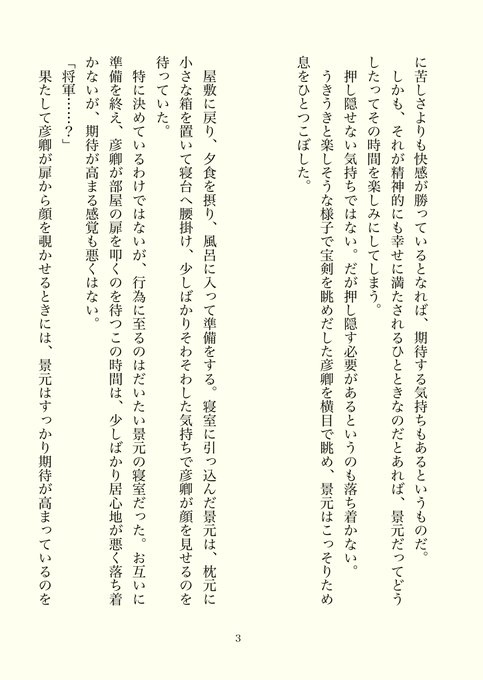 に苦しさよりも快感が勝っているとなれば、期待する気持ちもあるというものだ。
しかも、それが精神的にも幸せに満たされるひとときなのだとあれば、景元だってどう
したってその時間を楽しみにしてしまう。
押し隠せない気持ちではない。だが押し隠す必要があるというのも落ち着かない。
うきうきと楽しそうな様子で宝剣を眺めだした彦卿を横目で眺め、景元はこっそりため
息をひとつこぼした。
屋敷に戻り、夕食を摂り、風呂に入って準備をする。寝室に引っ込んだ景元は、枕元に
小さな箱を置いて寝台へ腰掛け、少しばかりそわそわした気持ちで彦卿が顔を見せるのを
待っていた。
特に決めているわけではないが、行為に至るのはだいたい景元の寝室だった。お互いに
準備を終え、彦卿が部屋の扉を叩くのを待つこの時間は、少しばかり居心地が悪く落ち着
かないが、期待が高まる感覚も悪くはない。
「将軍……？」
果たして彦卿が扉から顔を覗かせるときには、景元はすっかり期待が高まっているのを
3